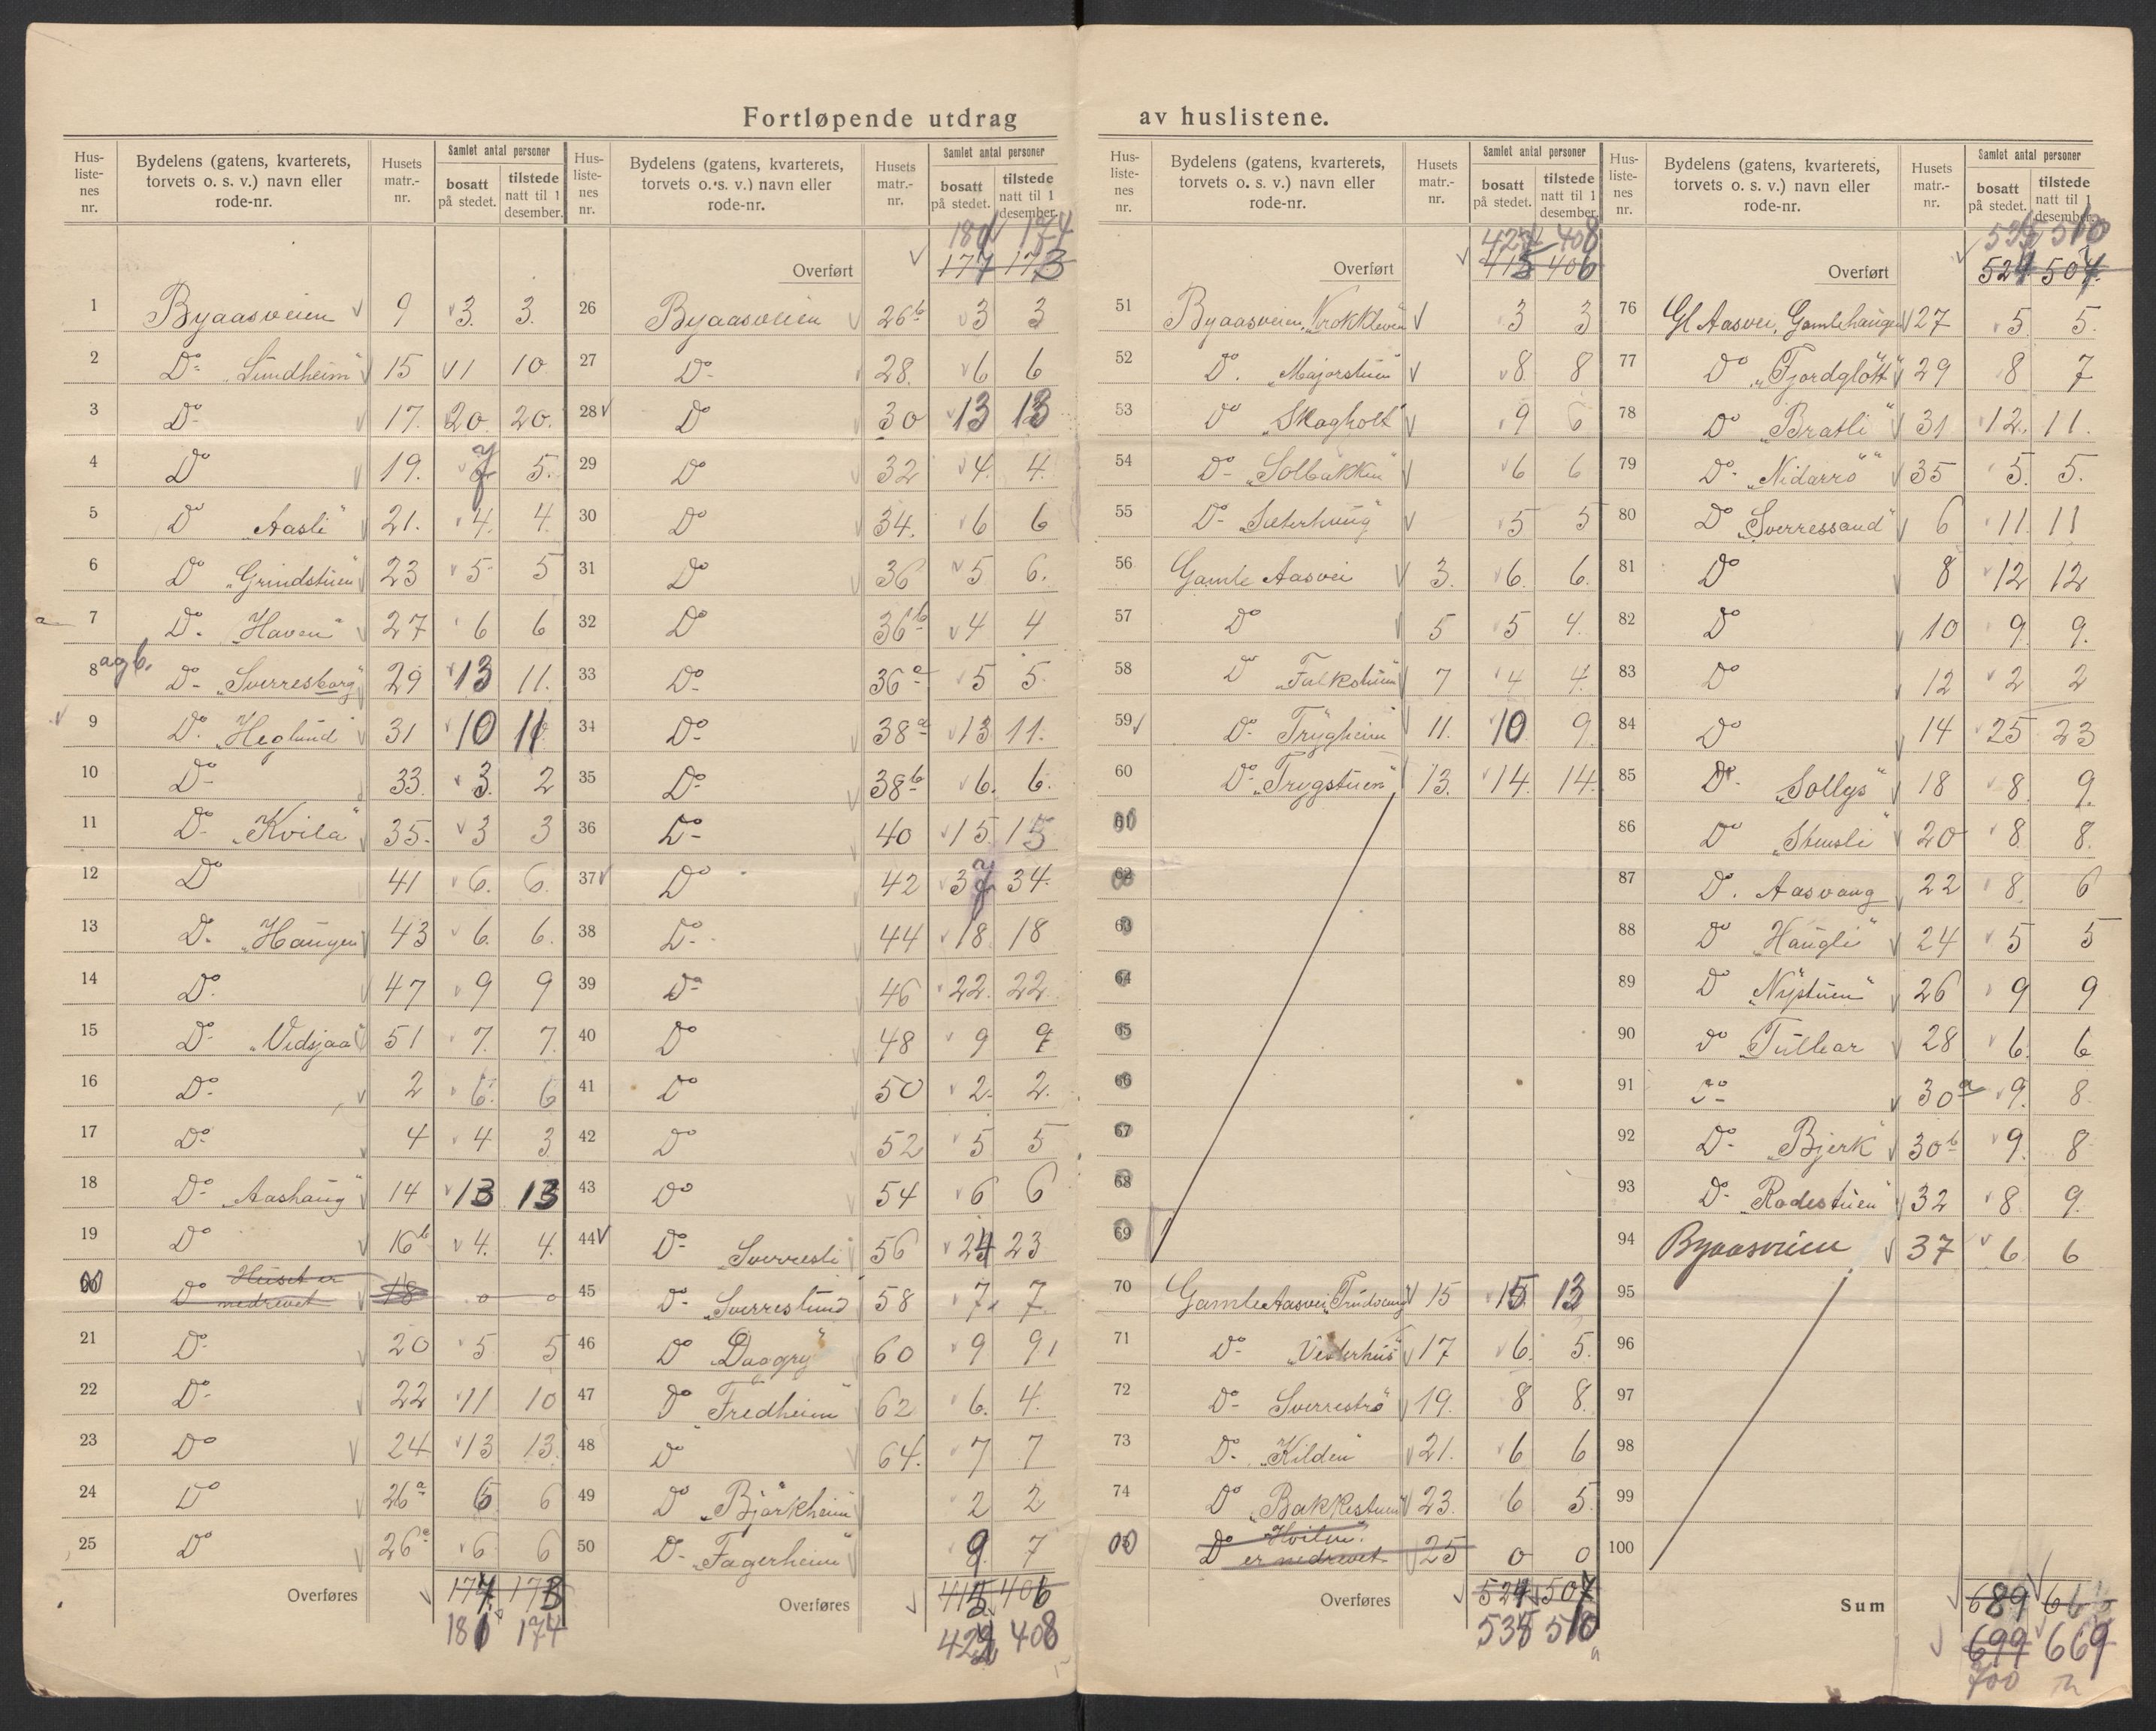 Fortløpende utdrag av huslistene.
Hus-listenes nr. | Bydelens (gatens, kvarterets, torvets o. s. v.) navn eller rode-nr. | Husets matr.-nr. | Samlet antal personer bosatt på stedet. | tilstede natt til 1 desember.
1 Byaasveien 9 3. 3.
2 Do- „Lundheim" 15 11 10
3 Do- 17. 20 20.
4 Do 19. 7 5.
5 Do „Aasli" 21. 4. 4.
6 Do „Grindstuen" 23 5 5
7 Do. „Haven" 27 6 6
8 a g b. Do- „Sverresborg" 29 13 11.
9 Do. „Heglund" 31 10 11
10 Do- 33. 3. 2
11 Do- „Kvila" 35. 3 3
12 Do 41 6. 6.
13 Do. „Haugen" 43 6. 6.
14 Do. 47 9 9
15 Do- „Vidsjaa" 51 7. 7.
16 Do. 2 6. 6
17 Do- 4 4 3
18 Do- „Aashaug" 14 13 13
19 Do 16b 4. 4.
Do Huset er nedrevet 18 0 0
21 Do- 20 5 5
22 Do- 22 11 10
23 Do 24 13 13.
24 Do 26a 6 6
25 Do 26 6 6
Overføres 177 173
181 174
Hus-listenes nr. | Bydelens (gatens, kvarterets, torvets o. s. v.) navn eller rode-nr. | Husets matr.-nr. | Samlet antal personer bosatt på stedet. | tilstede natt til 1 desember.
181 174
Overført 177 173
26 Byaasveien 26b 3 3
27 Do- 28. 6 6
28 Do 30 13 13
29 Do 32 4. 4.
30 Do 34. 6 6
31 Do 36 5 6.
32 Do 36b 4 4
33 Do- 36a 5 5.
34 Do- 38a 13 11.
35 Do- 38b 6. 6.
36 Do- 40 15 15
37 Do 42 37 34.
38 Do- 44 18 18
39 Do 46 22. 22
40 Do 48 9 9
41 Do 50 2. 2.
42 Do 52 5 5
43 Do 54 6 6
44 Do- „Sverresli" 56 24 23
45 Do- „Sverreslund" 58 7. 7
46 Do „Daggry" 60 9 9
47 Do „Fredheim" 62 6. 4.
48 Do 64. 7 7
49 Do „Bjørkheim" 2 2
50 Do- „Fagerheim" 9 7
Overføres 415 406
422 408
Hus-listenes nr. | Bydelens (gatens, kvarterets, torvets o. s. v.) navn eller rode-nr. | Husets matr.-nr. | Samlet antal personer bosatt på stedet. | tilstede natt til 1 desember.
422 408
Overført 415 406
51 Byaasveien „Krokkleven" 3 3
52 Do. „Majorstuen" 8 8
53 Do „Skogholt" 9 6
54 Do- „Solbakken" 6 6
55 Do- „Sæterhaug" 5 5
56 Gamle Aasvei 3. 6. 6.
57 Do 5 5 4.
58 Do „Falkstuen" 7 4 4.
59 Do- „Trygheim" 11. 10 9.
60 Do- „Trygstuen" 13. 14. 14.
61
62
63
64
65
66
67
68
69
70 Gamle Aasvei „Trudvang" 15 15 13
71 Do- „Vesterhus" 17 6. 5.
72 Do- Sverrestrø 19. 8 8.
73 Do- „Kilden" 21. 6 6
74 Do „Bakkestuen" 23. 6 5.
Do „Hvilen" er nedrevet 25 0 0
Overføres 524 507
535 510
Hus-listenes nr. | Bydelens (gatens, kvarterets, torvets o. s. v.) navn eller rode-nr. | Husets matr.-nr. | Samlet antal personer bosatt på stedet. | tilstede natt til 1 desember.
535 510
Overført 524 507.
76 Gl Aasvei, Gamlehaugen 27 5. 5.
77 Do „Fjordgløtt" 29 8 7
78 Do „Bratli" 31 12. 11.
79 Do- „Nidarrø" 35 5. 5.
80 Do „Sverressand" 6 11. 11
81 Do 8 12 12
82 Do 10 9. 9.
83 Do 12 2 2
84 Do 14 25 23
85 Do- „Sollys" 18 8 9.
86 Do „Stensli" 20 8 8.
87 Do. Aasvang 22 8. 6
88 Do „Haugli" 24 5 5
89 Do „Nystuen" 26 9 9
90 Do 28 6. 6
91 Do- 30a 9. 8.
92 Do- „Bjerk" 30b 9. 8
93 Do- „Rodestuen" 32 8 9.
94 Byaasveien 37 6 6
95
96
97
98
99
100
Sum 689 666
699 669
700